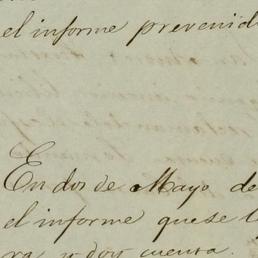 el informe prevenid
En dos de Mayo de
el informe que se l
ra y doy cuenta.